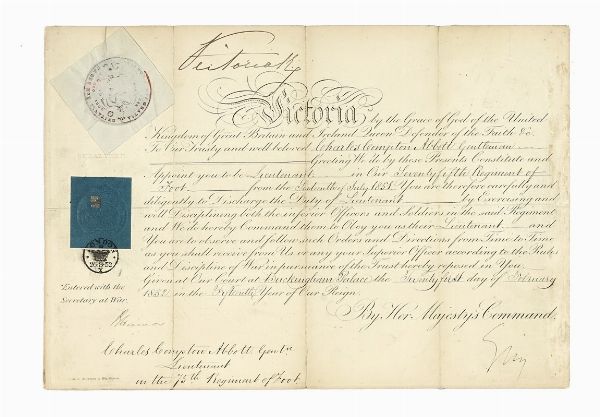 Victoria R
Victoria by the Grace of God of the United
Kingdom of Great Britain and Ireland Queen Defender of the Faith &c.
To Our Trusty and well beloved Charles Compton Abbott Gentleman
Greeting We do by these Presents Constitute and
Appoint you to be Lieutenant in Our Seventyfifth Regiment of
Foot from the July 1851. You are therefore carefully and
diligently to Discharge the Duty of Lieutenant by Exercising and
well Disciplining both the inferior Officers and Soldiers in the said Regiment
and We do hereby Command them to Obey you as their Lieutenant and
You are to observe and follow such Orders and Directions from Time to Time
as you shall receive from Us or any your Superior Officer according to the Rules
and Discipline of War in pursuance of the Trust hereby reposed in You.
Given at Our Court at Buckingham Palace the Twentyfirst day of February
1852 in the Fifteenth Year of Our Reign.
Entered with the
Secretary at War.
By Her Majesty's Command,
Charles Compton Abbott Gentn
Lieutenant
in the 75th Regiment of Foot